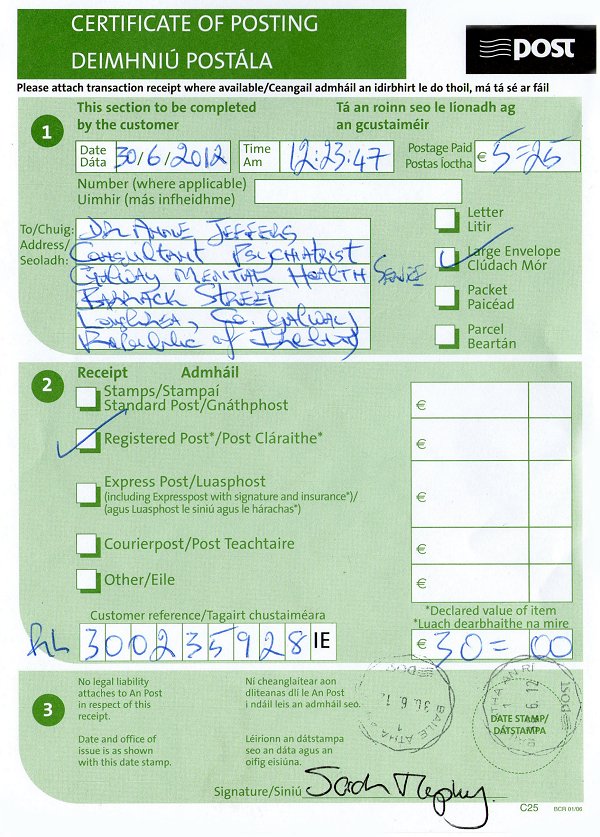 CERTIFICATE OF POSTING
DEIMHNIÚ POSTÁLA
post
Please attach transaction receipt where available/Ceangail admháil an idirbhirt le do thoil, má tá sé ar fáil
1
This section to be completed by the customer
Tá an roinn seo le líonadh ag an gcustaiméir
Date
Dáta
30/6/2012
Time
Am
12:23:47
Postage Paid
Postas Íoctha
€ 5=25
Number (where applicable)
Uimhir (más infheidhme)
To/Chuig:
Address/
Seoladh:
DR ANNE JEFFERS
CONSULTANT PSYCHIATRIST
GALWAY MENTAL HEALTH SERVICE
BARRACK STREET
LOUGHREA, CO. GALWAY
Republic of Ireland
Letter
Litir
Large Envelope
Clúdach Mór
Packet
Paicéad
Parcel
Beartán
2
Receipt Admháil
Stamps/Stampaí
Standard Post/Gnáthphost
€
Registered Post*/Post Cláraithe*
€
Express Post/Luasphost
(including Expresspost with signature and insurance*)/
(agus Luasphost le siniú agus le hárachas*)
€
Courierpost/Post Teachtaire
€
Other/Eile
€
*Declared value of item
*Luach dearbhaithe na míre
Customer reference/Tagairt chustaiméara
RL 300235928 IE
€ 30=00
3
No legal liability
attaches to An Post
in respect of this
receipt.
Ní cheanglaítear aon
dliteanas dlí le An Post
i ndáil leis an admháil seo.
Date and office of
issue is as shown
with this date stamp.
Léiríonn an dátstampa
seo an dáta agus an
oifig eisiúna.
BAILE ATHA
30.6.12
1
DATE STAMP/
DÁTSTAMPA
Signature/Síniú
C25 BCR 01/06